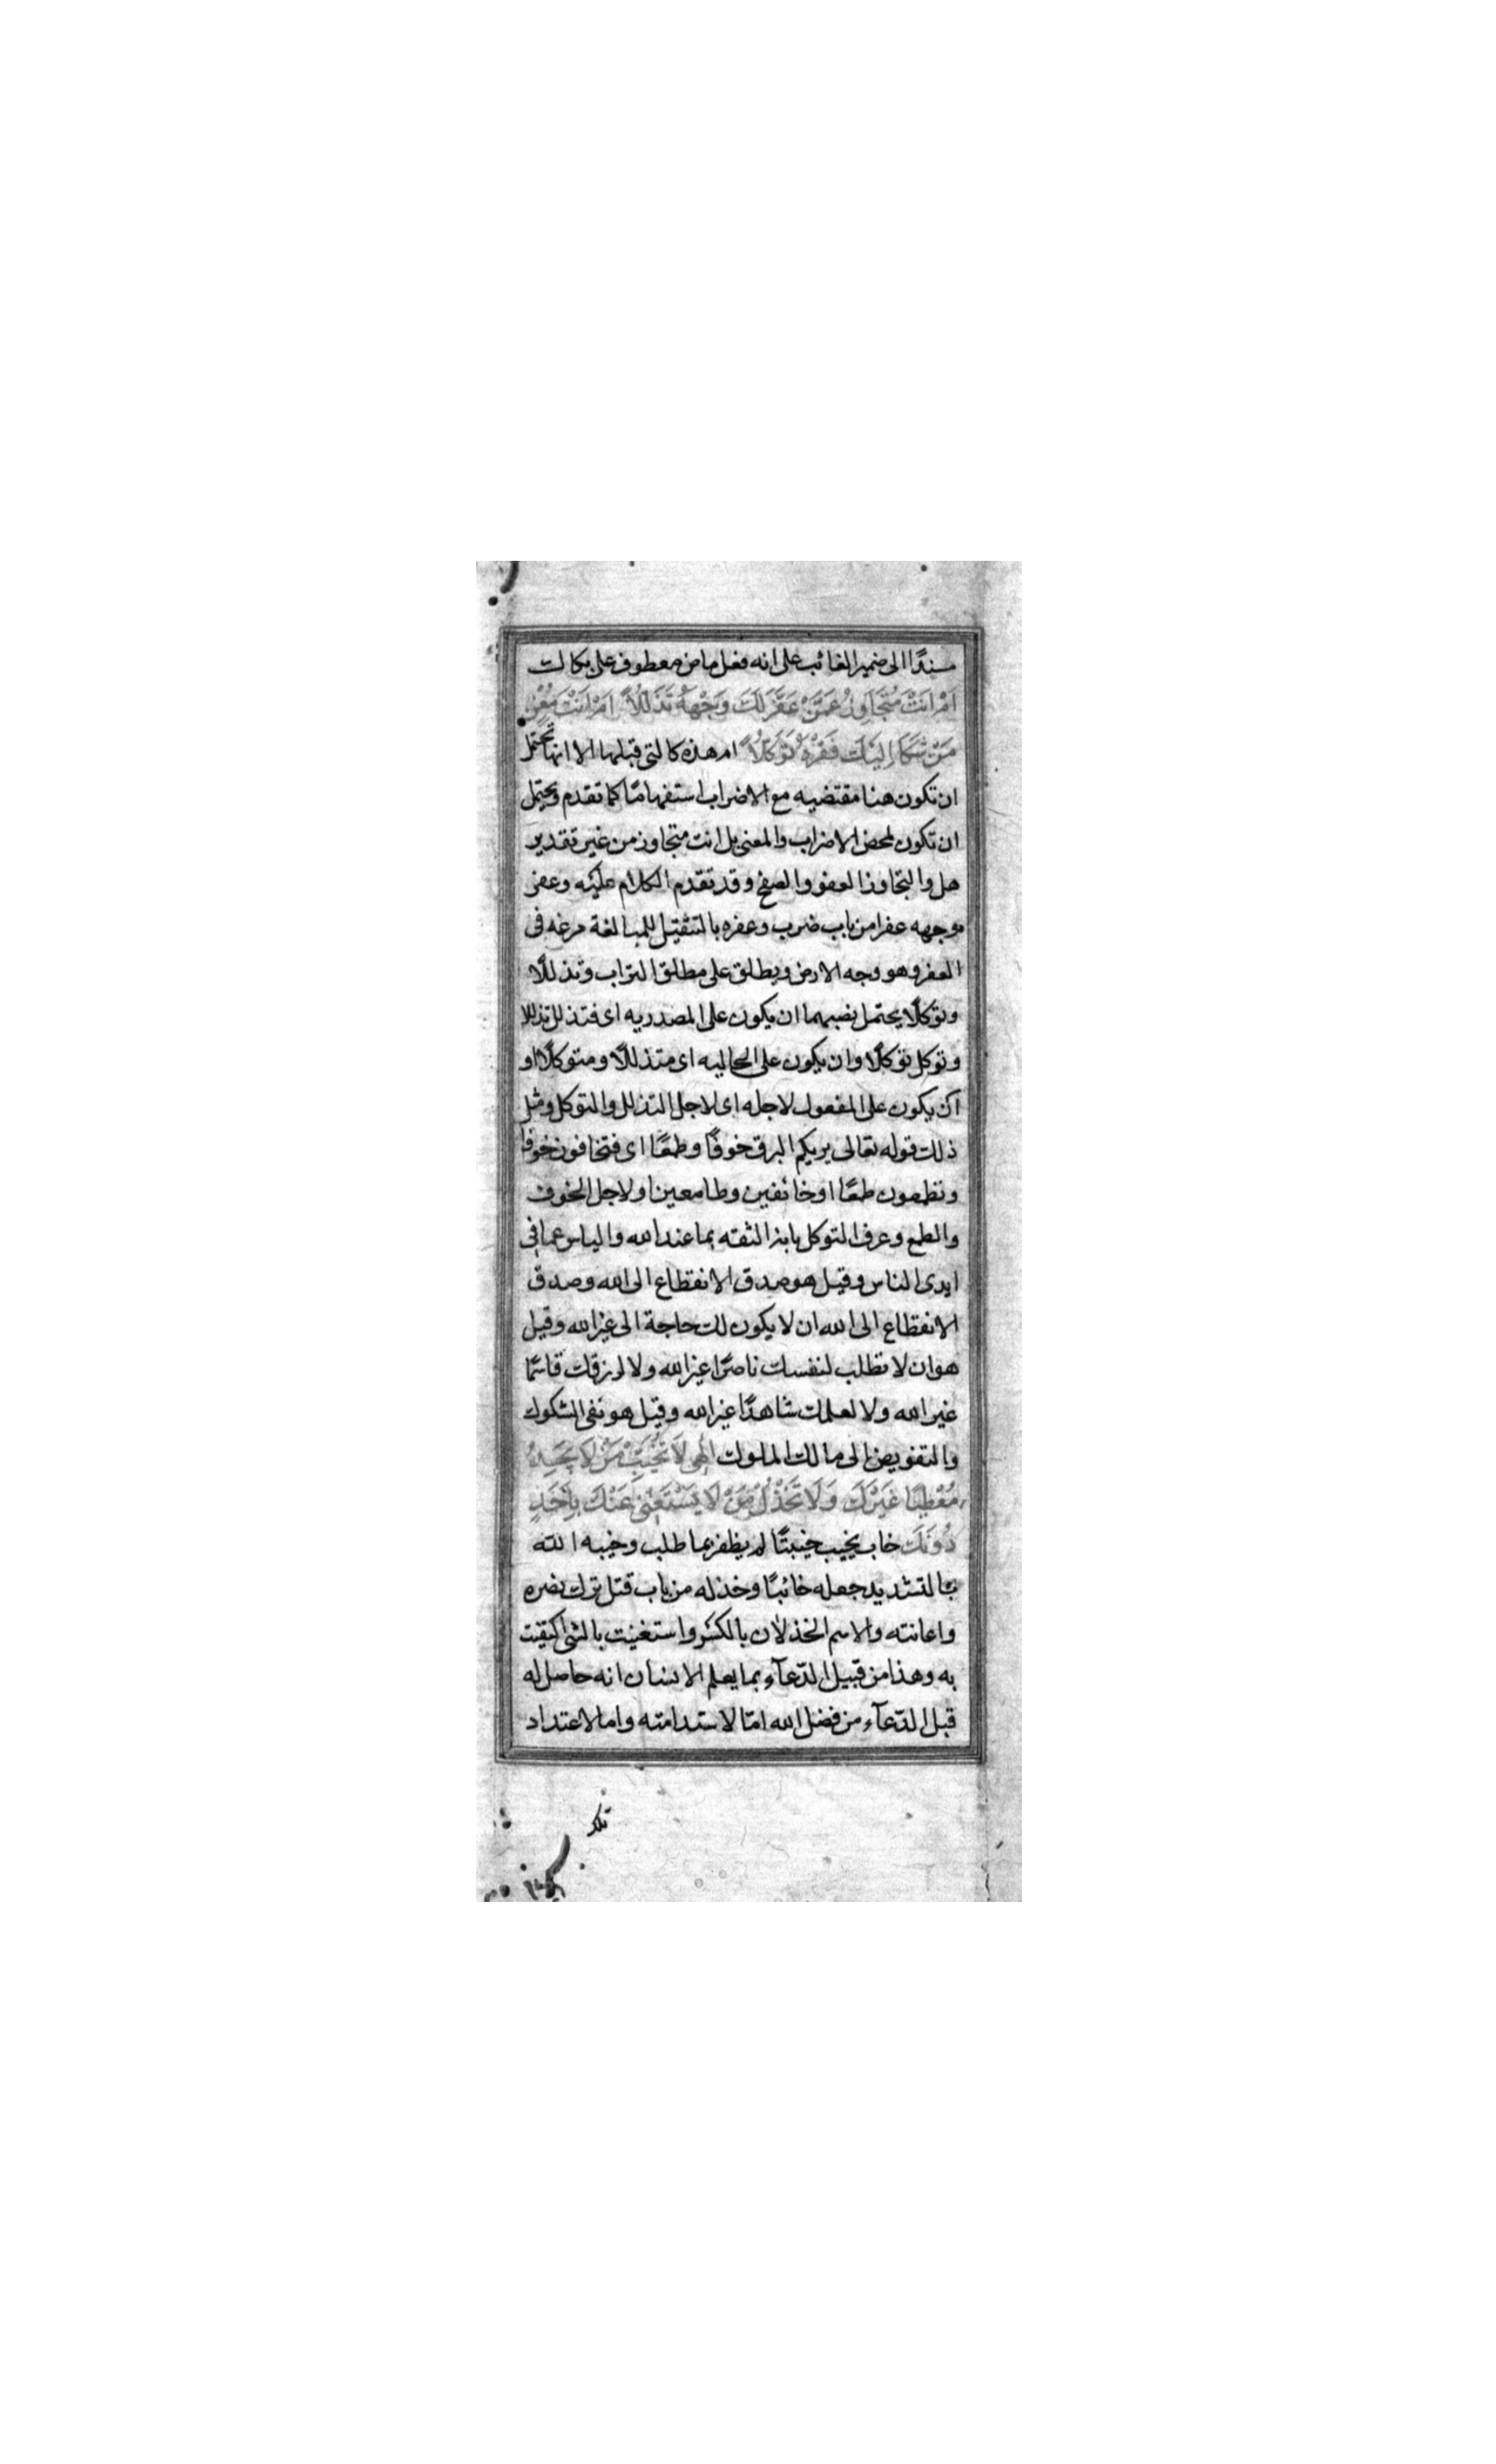 مسندًا الى ضمير الغائب على انه فعل ماض معطوف على بكا لك
اَمْ اَنْتَ مُتَجَاوِزٌ عَمَّنْ عَفَّرَ لَكَ وَجْهَهُ تَذَلُّلًا اَمْ اَنْتَ مُغْنٍ
مَنْ شَكَا اِلَيْكَ فَقْرَهُ تَوَكُّلًا ام هذه كالتى قبلها الا انها تحتمل
ان تكون هنا مقتضيه مع الاضراب استفهامًا كما تقدم ويحتمل
ان تكون لمحض الاضراب والمعنى بل انت متجاوز من غير تقدير
هل والتجاوز العفو والصفح وقد تقدم الكلام عليه وعفر
وجهه عفرا من باب ضرب وعفره بالتثقيل للمبالغة مرغه فى
العفر وهو وجه الارض ويطلق على مطلق التراب وتذللًا
وتوكلًا يحتمل نصبهما ان يكون على المصدريه اى فتذلل تذللا
وتوكل توكلًا وان يكون على الحاليه اى متذللًا ومتوكلًا او
ان يكون على المفعول لاجله اى لاجل التذلل والتوكل ومثل
ذلك قوله تعالى يريكم البرق خوفًا وطمعًا اى فتخافون خوفا
وتطمعون طمعًا او خائفين وطامعين او لاجل الخوف
والطمع وعرف التوكل بانه الثقته بما عند الله والياس عما فى
ايدى الناس وقيل هو صدق الانقطاع الى الله وصدق
الانقطاع الى الله ان لا يكون لك حاجة الى غير الله وقيل
هو ان لا تطلب لنفسك ناصرًا غير الله ولا لرزقك قاسمًا
غير الله ولا لعملك شاهدًا غير الله وقيل هو نفى الشكوك
والتفويض الى مالك الملوك اِلٰهى لَا تُخَيِّبْ مَنْ لَا يَجِدُ
مُعْطِيًا غَيْرَكَ وَلَا تَخْذُلْ مَنْ لَا يَسْتَغْنِى عَنْكَ بِاَحَدٍ
دُونَكَ خاب يخيب خيبتًا لم يظفر بما طلب وخيبه الله
بالتشديد جعله خائبًا وخذله من باب قتل ترك نصره
واعانته والاسم الخذلان بالكسر واستغنيت بالشى اكتفيت
به وهذا من قبيل الدّعآء بما يعلم الانسان انه حاصل له
قبل الدّعآء من فضل الله امّا لاستدامته واما لاعتداد